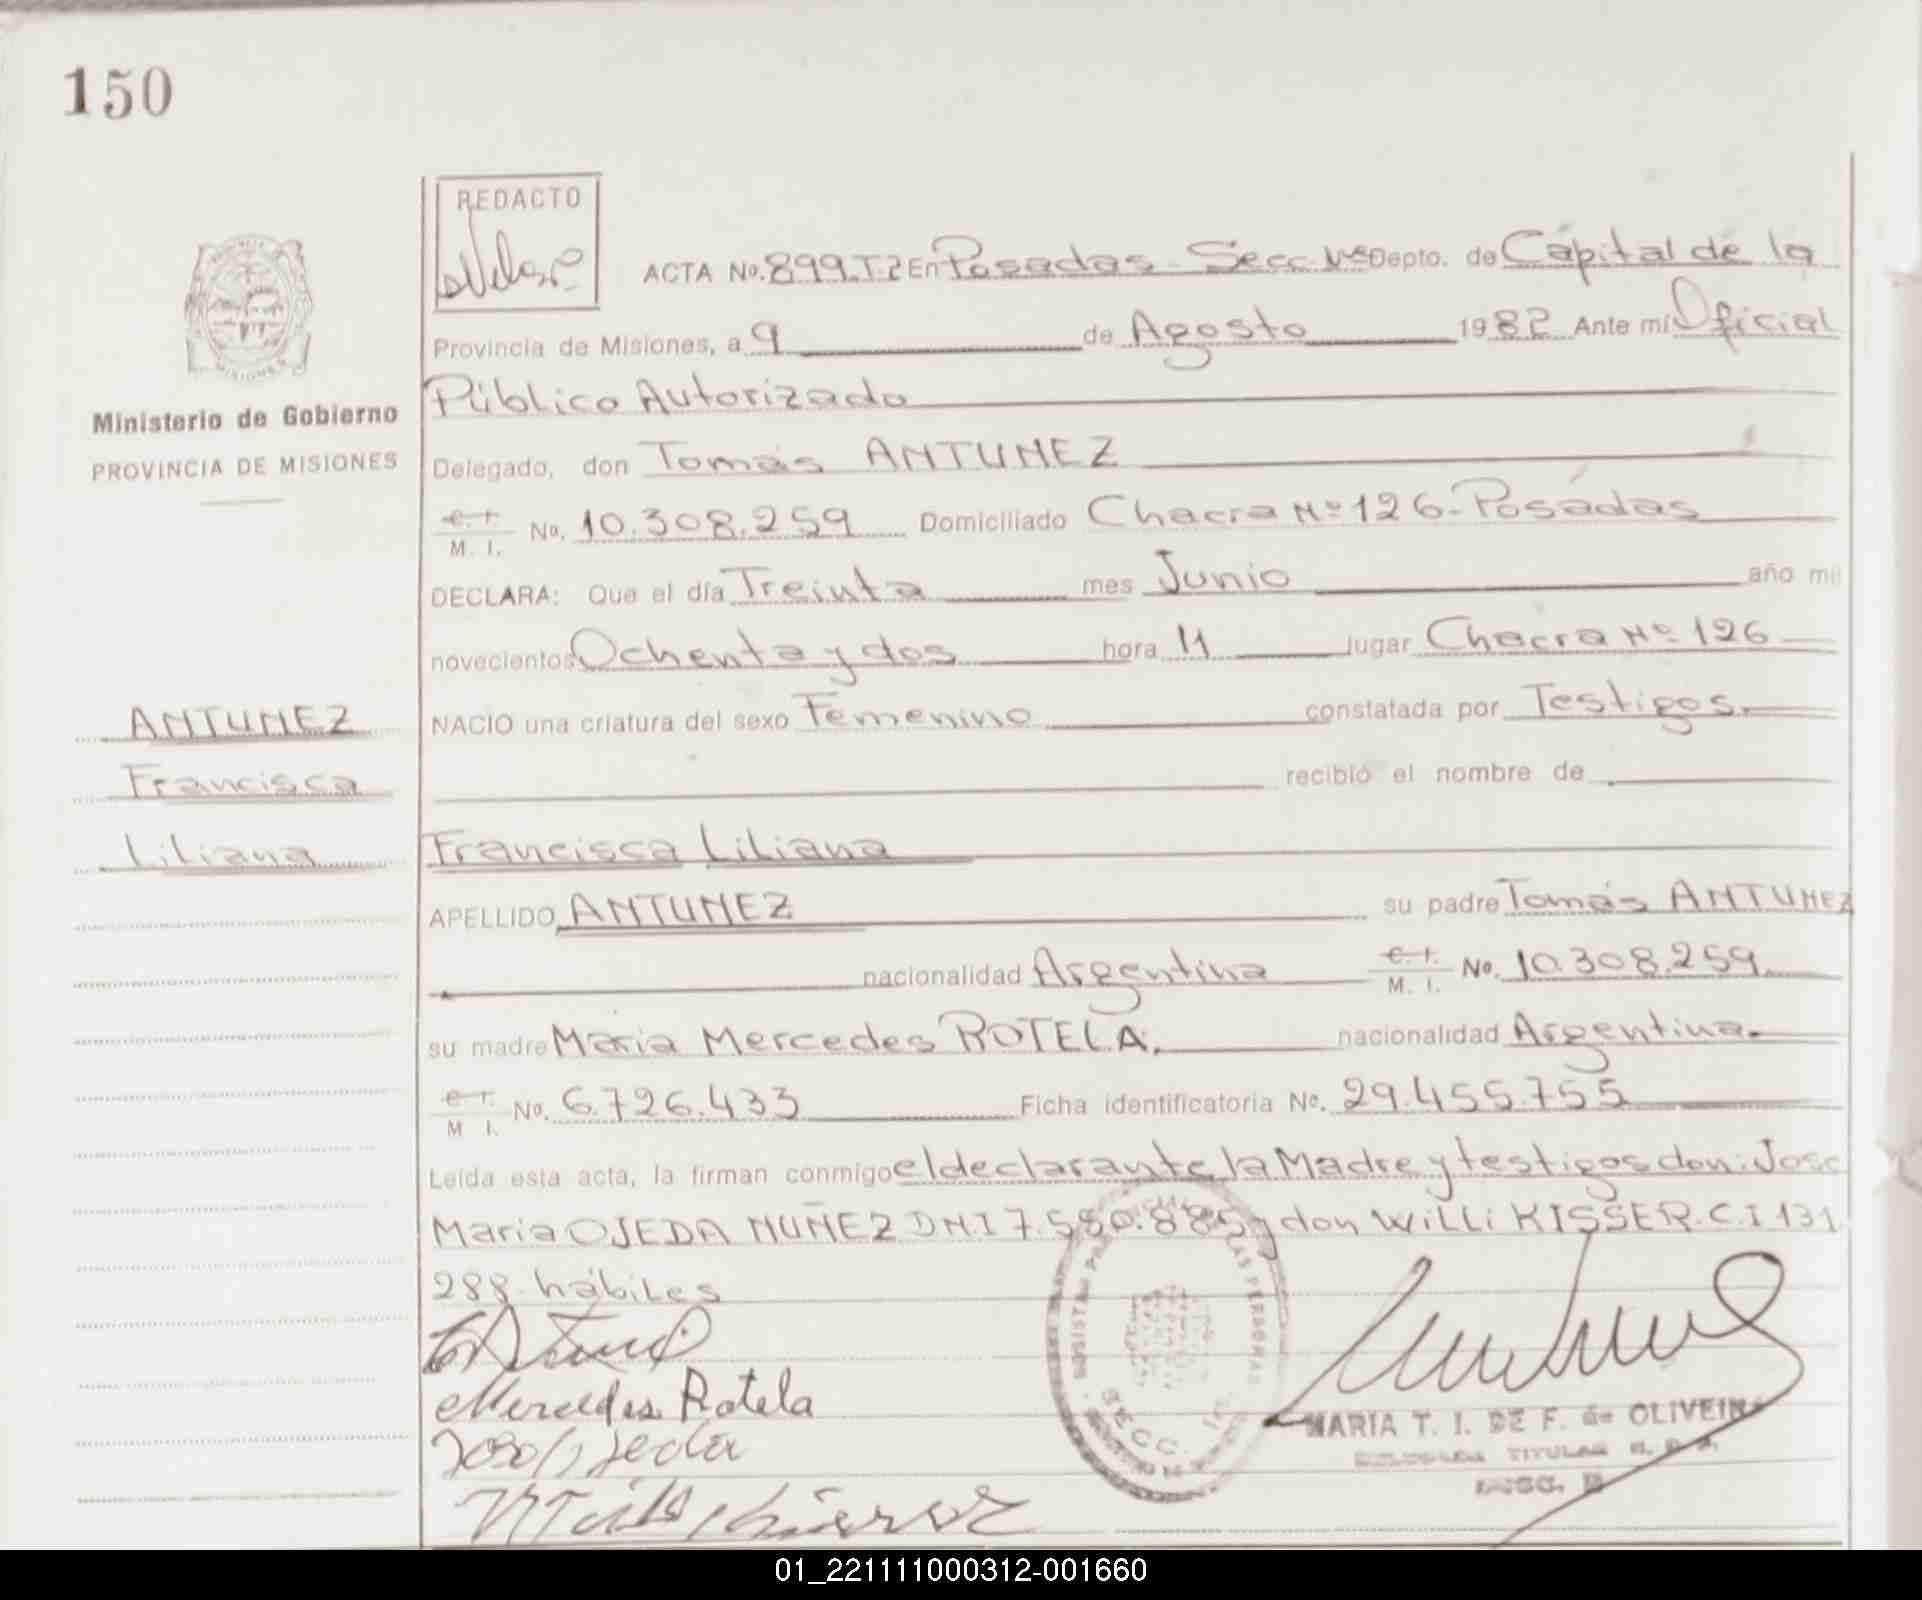 150
REDACTO
ACTA No. 899.T.2 En Posadas - Secc. 1ra Depto. de Capital de la
Provincia de Misiones, a 9 de Agosto 1982 Ante mi Oficial
Ministerio de Gobierno
PROVINCIA DE MISIONES
Público Autorizado
Delegado, don Tomás ANTUNEZ
C. I. M. I. No. 10.308.259 Domiciliado Chacra Nº 126 - Posadas
DECLARA: Que el día Treinta mes Junio año mil
novecientos Ochenta y dos hora 11 lugar Chacra Nº 126
ANTUNEZ
NACIO una criatura del sexo Femenino constatada por Testigos.
Francisca
recibió el nombre de
Liliana
Francisca Liliana
APELLIDO ANTUNEZ su padre Tomás ANTUNEZ
nacionalidad Argentina C. I. M. I. No. 10.308.259
su madre María Mercedes ROTELA. nacionalidad Argentina.
C. I. M I. No. 6.726.433 Ficha identificatoria No. 29.455.755
Leída esta acta, la firman conmigo el declarante la Madre y testigos don: Jose
Maria OJEDA NUÑEZ D.N.I 7.580.885 y don WiLLi KISSER. C.I 131
288. hábiles
Mercedes Rotela
MARIA T. I. DE F. de OLIVEIRA
TITULAR
SECC.
01_221111000312-001660